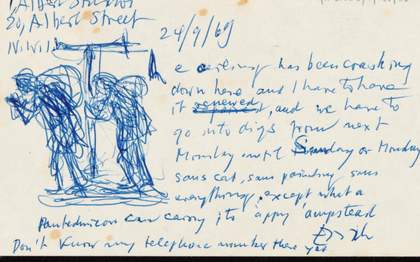 Albert Studios
20, Albert Street
N.W.1.
24/9/69
e ceiling has been crashing
down here and I have to have
it renewed, and we have to
go into digs from next
Monday until Sunday or Monday
sans cat, sans painting, sans
everything, except what a
Pantechnicon can carry to 'appy 'ampstead
Don't know my telephone number there yet